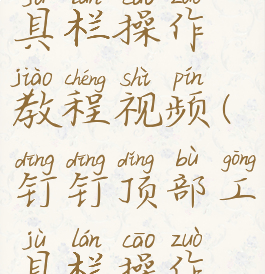 jù lán cāo zuò
具栏操作
jiào chéng shì pín
教程视频(
dīng dīng dǐng bù gōng
钉钉顶部工
jù lán cāo zuò
具栏操作